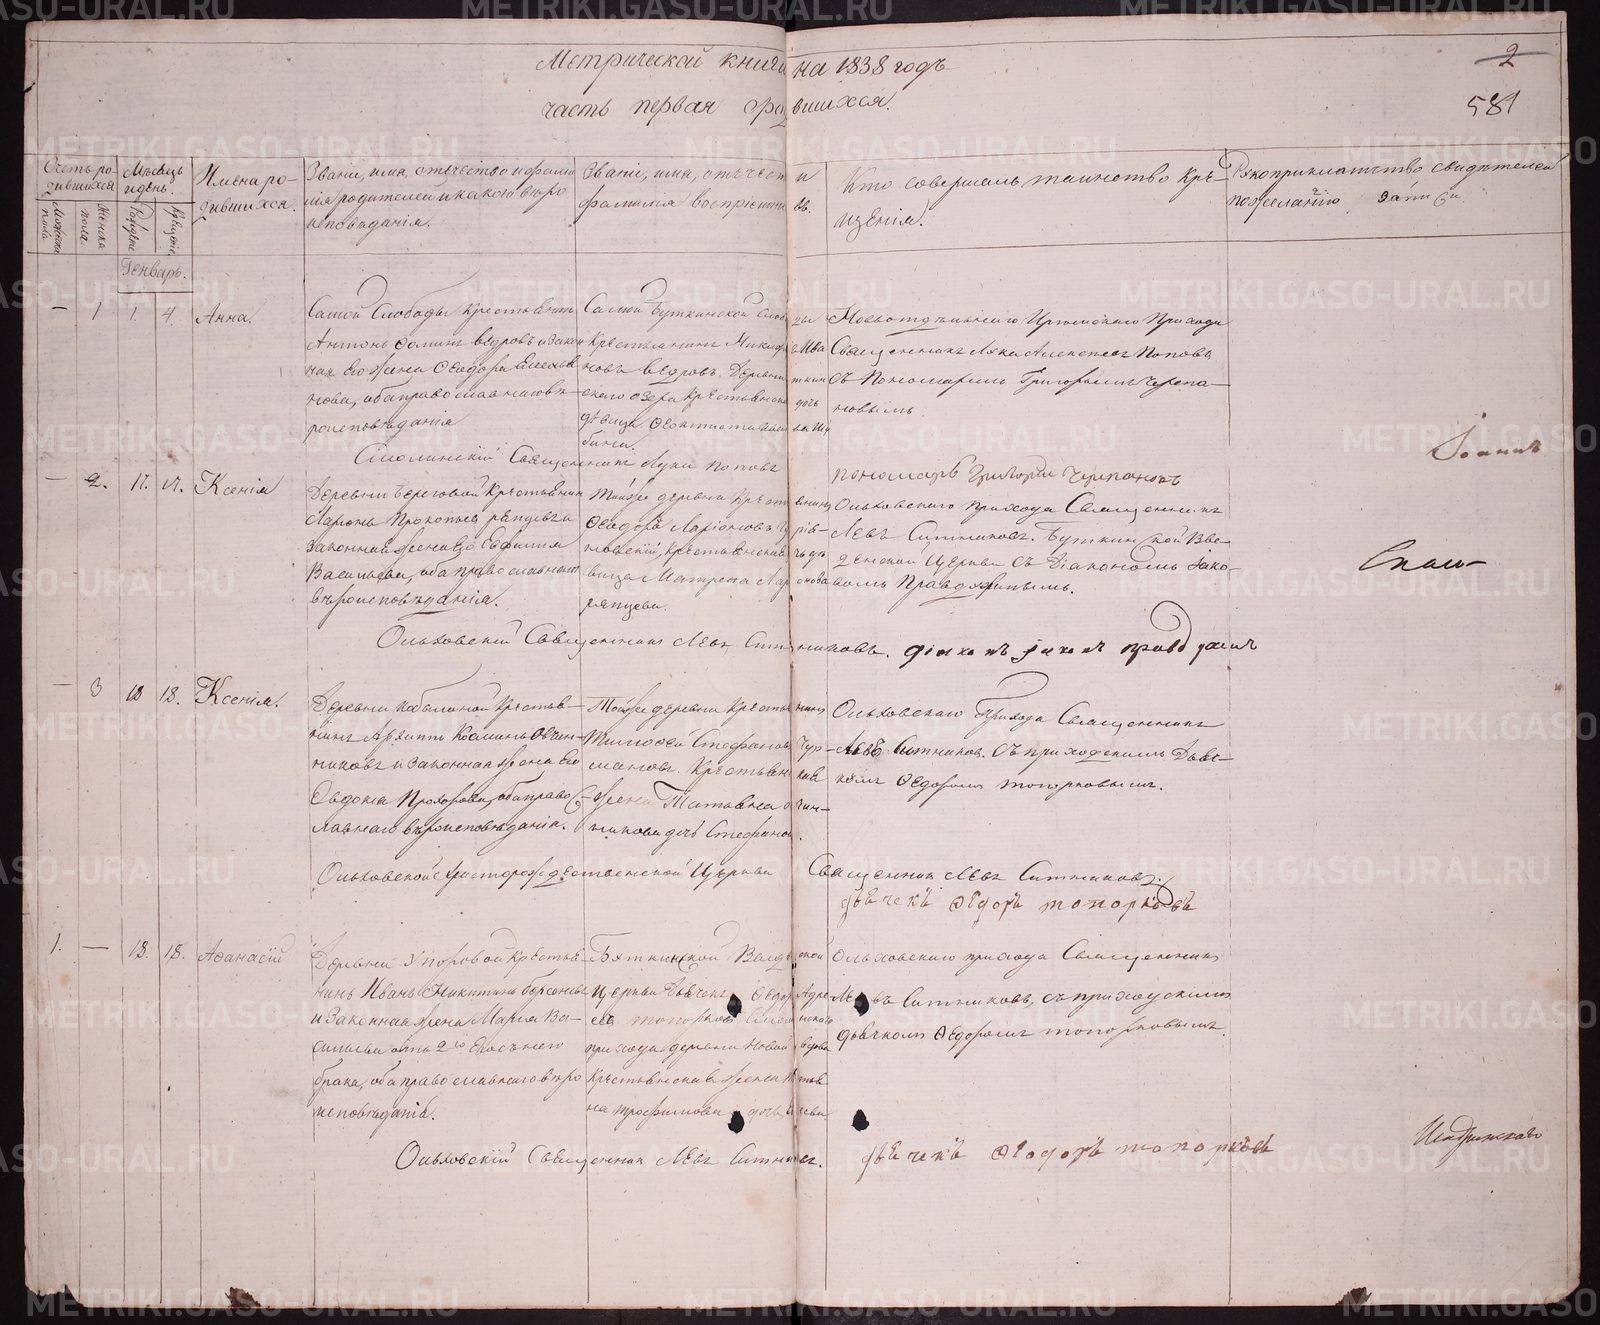 Метрической книги на 1838 годъ
часть первая о родившихся.
2
581
Счетъ родившихся
Мѣсяцъ и день.
Имена родившихся.
Званіе, имя, отчество и фамилія родителей и какого вѣроисповѣданія.
Званіе, имя, отчество и фамилія воспріемниковъ.
Кто совершалъ таинство крещенія.
Рукоприкладство свидѣтелей записи по желанію
Мужеска пола
Женска пола.
Рожденіе
Крещеніе
Генварь.
— 1 1. 4. Анна.
Самой Слободы крестьянинъ
Антонъ Ѳоминъ Ведровъ и закон
ная его жена Ѳеодора
нова, оба православнаго вѣ
роисповѣданія
Самой Буткинской Слободы
Крестьянинъ
новъ Ведровъ. Деревни
скаго озера крестьянская дочь
дѣвица Ѳеоктиста
Священникъ Лука Алексѣевъ Поповъ
съ Пономаремъ Григорьемъ Черепа-
новымъ
Смолинскій Священникъ Лука Поповъ
пономарь Григорій Черепановъ
Іоаннъ
— 2. 17. 17. Ксенія
Деревни Береговой Крестьянинъ
Ларіонъ Прокопьевъ Ряпцевъ и
законная жена его Евфимія
Васильева, оба православнаго
вѣроисповѣданія.
Тойже деревни крестьянинъ
Ѳеодоръ Ларіоновъ
новскій, крестьянская дѣ
вица Матрена Ларіонова
Ряпцева.
Ольховскаго прихода Священникъ
Левъ Ситниковъ. Буткинской Вве-
денской Церкви съ Діакономъ Іако-
вомъ Правдухинымъ.
Спас-
Ольховскій Священникъ Левъ Ситниковъ. діаконъ Іаковъ
— 3 18 18. Ксенія.
Деревни Кабалиной Крестья-
нинъ Архиппъ Козминъ Овчин-
никовъ и законная жена его
Евдокія Прохорова, оба правос-
лавнаго вѣроисповѣданія.
Тойже деревни крестьянинъ
Тимоѳей Стефановъ
мановъ. Крестьянская
жена Татьяна Овчин-
никова дочь Стефанова.
Ольховскаго Прихода Священникъ
Левъ Ситниковъ. съ приходскимъ Дьяч-
комъ Ѳедоромъ Топорковымъ.
Ольховской Христорождественской Церкви Священникъ Левъ Ситниковъ.
дьячекъ Ѳедоръ Топорковъ
1. — 18. 18. Аѳанасій
Деревни Упоровой Крестья-
нинъ Иванъ Никитинъ Берсеневъ
и законная жена Марія Ва-
сильева отъ 2го
брака, оба православнаго вѣро
исповѣданія.
Буткинской Введенской
Церкви Дьячекъ Ѳедоръ Андре-
евъ Топорковъ
прихода деревни Новой вдова
Крестьянская жена
на Трофимова дочь
Ольховскаго прихода Священникъ
Левъ Ситниковъ, съ приходскимъ
дьячкомъ Ѳедоромъ Топорковымъ.
Ольховскій Священникъ Левъ Ситниковъ. дьячекъ Ѳеодоръ Топорковъ
METRIKI.GASO-URAL.RU